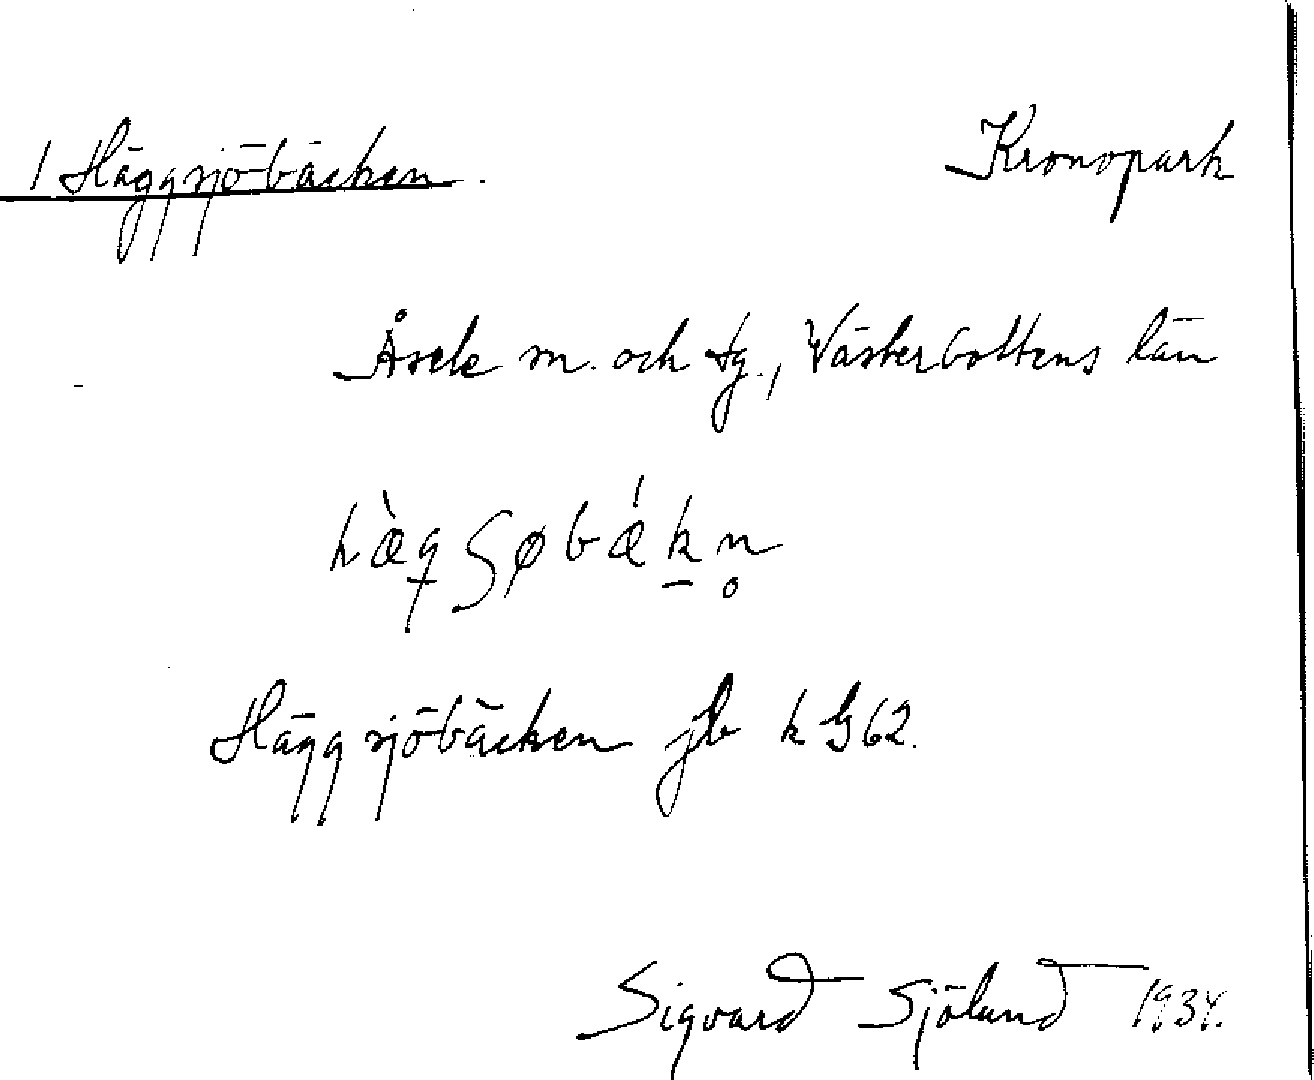 1 Häggsjöbäcken. Kronopark
Åsele sn. och tg., Västerbottens län
Häggsjöbäcken jb k G62.
Sigvard Sjölund 1934.